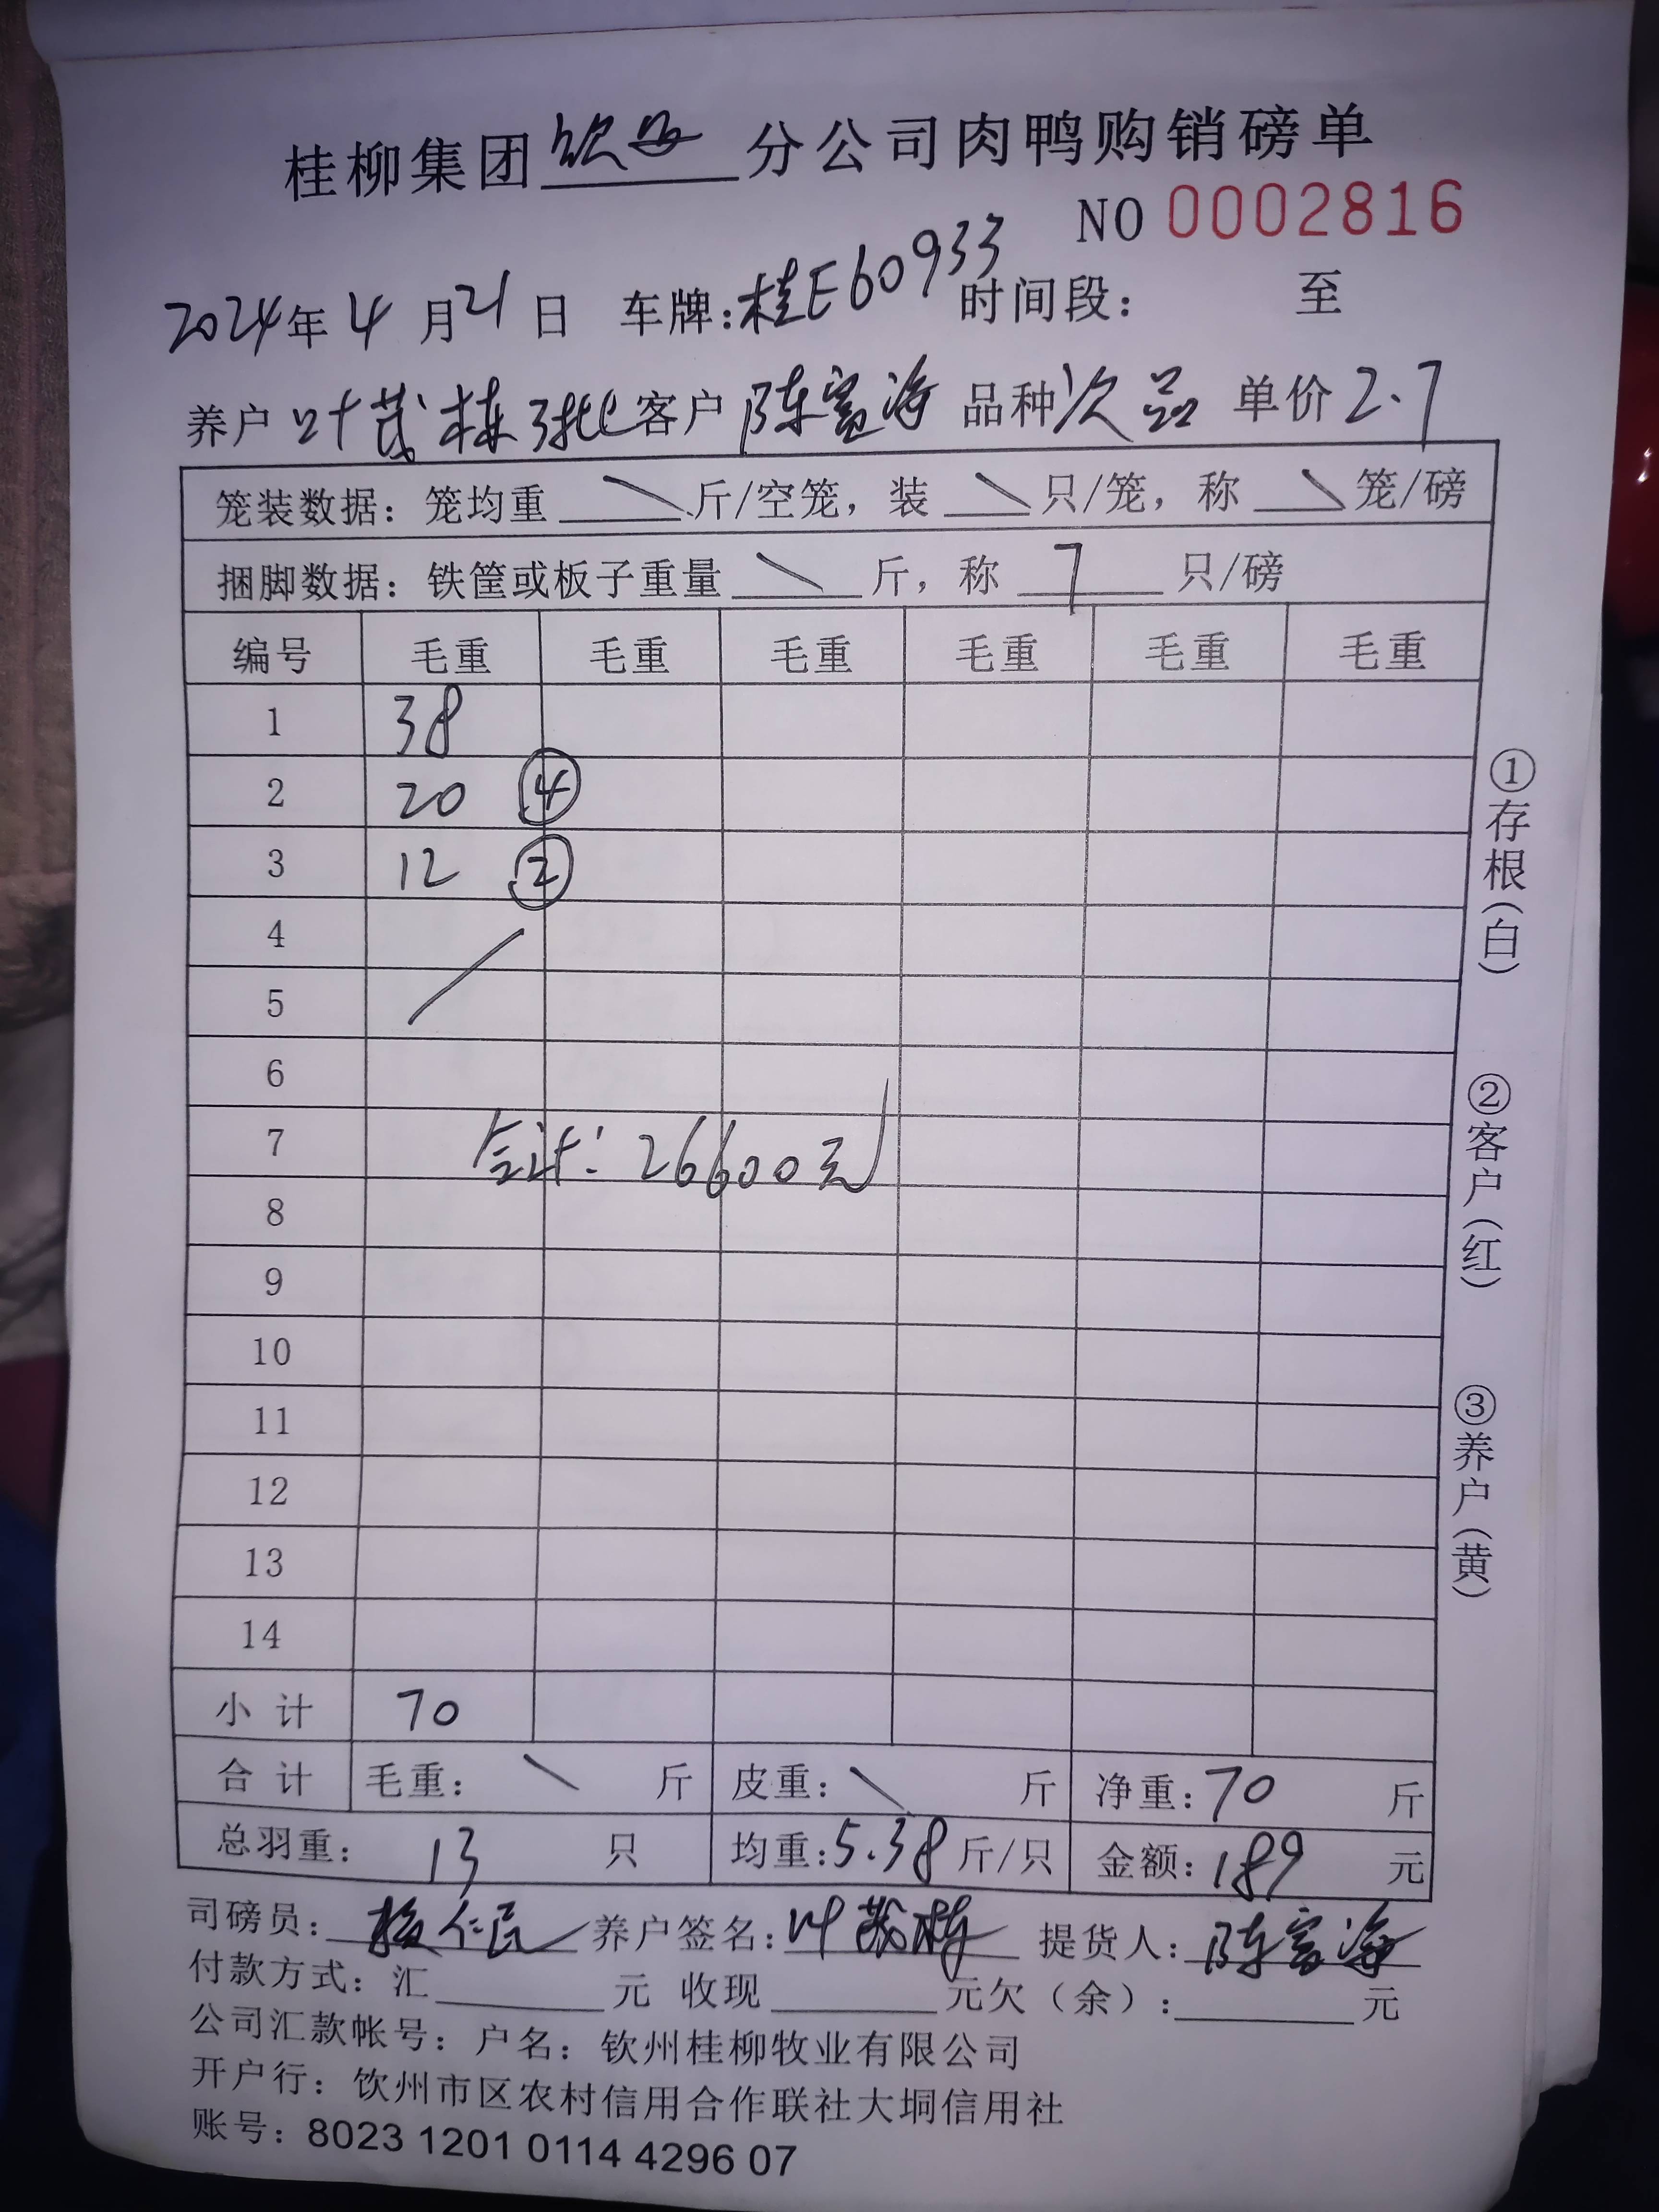 桂柳集团钦州分公司肉鸭购销磅单
NO 0002816
2024年4月21日 车牌:桂E60933 时间段: 至
养户叶茂栋3批 客户陈富海 品种次品 单价2.7
笼装数据: 笼均重 \ 斤/空笼, 装 \ 只/笼, 称 \ 笼/磅
捆脚数据: 铁筐或板子重量 \ 斤, 称 7 只/磅
编号 毛重 毛重 毛重 毛重 毛重 毛重
1 38
2 20 ④
3 12 ②
4
5
6
7 合计: 26600元
8
9
10
11
12
13
14
小计 70
合计 毛重: \ 斤 皮重: \ 斤 净重: 70 斤
总羽重: 13 只 均重: 5.38 斤/只 金额: 189 元
司磅员: 仁民 养户签名: 叶茂栋 提货人: 陈富海
付款方式: 汇 元 收现 元欠(余): 元
公司汇款帐号: 户名: 钦州桂柳牧业有限公司
开户行: 钦州市区农村信用合作联社大垌信用社
账号: 8023 1201 0114 4296 07
①存根(白)
②客户(红)
③养户(黄)